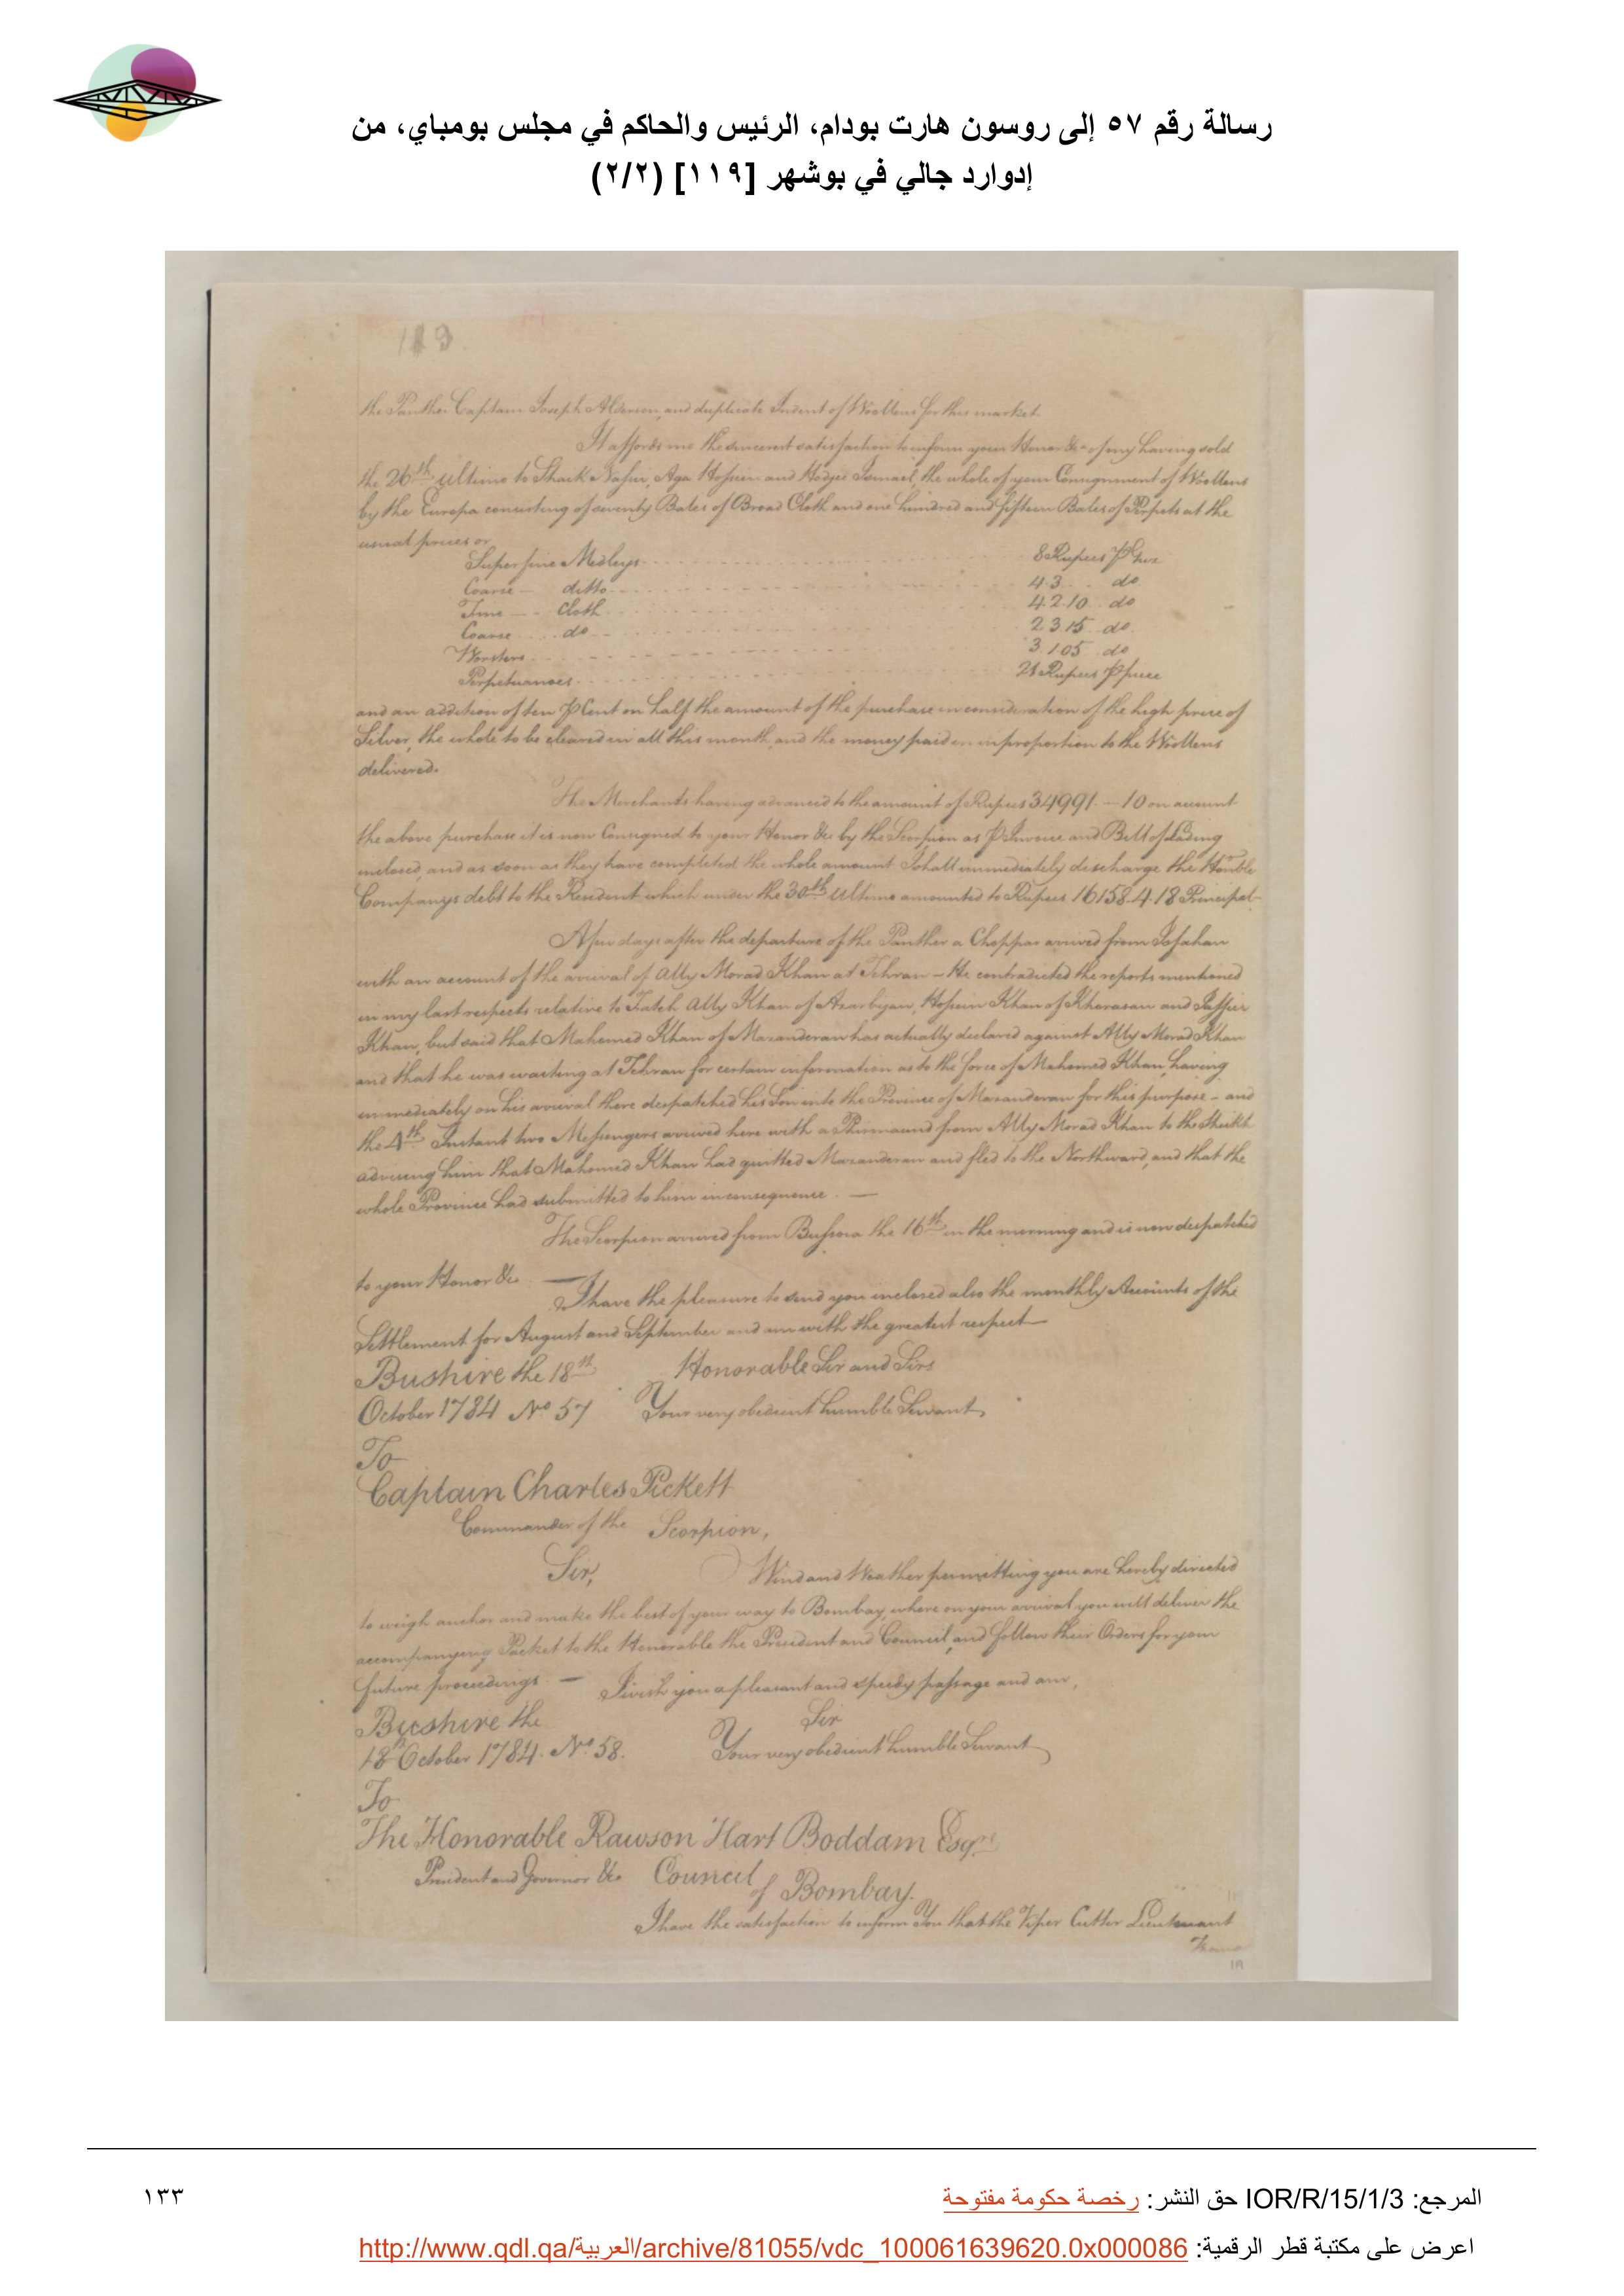 رسالة رقم ٥٧ إلى روسون هارت بودام، الرئيس والحاكم في مجلس بومباي، من
إدوارد جالي في بوشهر [١١٩] (٢/٢)
119
the Panther Captain Joseph Alderson, and duplicate Indent of Woollens for this market.
It affords me the sincerest satisfaction to inform your Honor &c of my having sold
the 26th ultimo to Shaik Nassir, Aga Hossein and Hodjee Ismael, the whole of your Consignment of Woollens
by the Europa consisting of seventy Bales of Broad Cloth and one hundred and fifteen Bales of Perpets at the
usual prices or
Superfine Medleys 8 Rupees P Guz
Coarse ditto 4.3 do
Fine cloth 4.2.10 do
Coarse do 2 3 15 do
Worsters 3.1.05 do
Perpetuanoes 21 Rupees P piece
and an addition of ten P Cent on half the amount of the purchase in consideration of the high price of
Silver, the whole to be cleared in all this month, and the money paid in in proportion to the Woollens
delivered.
The Merchants having advanced to the amount of Rupees 34991.—10 on account
the above purchase it is now Consigned to your Honor &c by the Scorpion as P Invoice and Bill of Lading
inclosed, and as soon as they have completed the whole amount I shall immediately discharge the Honble
Companys debt to the Resident which under the 30th Ultimo amounted to Rupees 16158.4.18 Principal
A few days after the departure of the Panther a Choppar arrived from Isfahan
with an account of the arrival of Ally Morad Khan at Tehran – He contradicted the reports mentioned
in my last respects relative to Fateh Ally Khan of Azarbijan, Hossein Khan of Khorasan and Jaffier
Khan, but said that Mahomed Khan of Mazanderan has actually declared against Ally Morad Khan
and that he was waiting at Tehran for certain information as to the force of Mahomed Khan, having
immediately on his arrival there despatched his Son into the Province of Mazanderan for this purpose – and
the 4th Instant two Messengers arrived here with a Phirmaund from Ally Morad Khan to the Sheikh
advising him that Mahomed Khan had quitted Mazanderan and fled to the Northward, and that the
whole Province had submitted to him in consequence. —
The Scorpion arrived from Bussora the 16th in the morning and is now despatched
to your Honor &c —
I have the pleasure to send you inclosed also the monthly Accounts of the
Settlement for August and September and am with the greatest respect —
Bushire the 18th Honorable Sir and Sirs
October 1784 No 57 Your very obedient humble Servant,
To
Captain Charles Pickett
Commander of the Scorpion,
Sir,
Wind and Weather permitting you are hereby directed
to weigh anchor and make the best of your way to Bombay, where on your arrival you will deliver the
accompanying Packet to the Honorable the President and Council, and follow their Orders for your
future proceedings. — I wish you a pleasant and speedy passage and am,
Bushire the Sir
18th October 1784. No 58. Your very obedient humble Servant
To
The Honorable Rawson Hart Boddam Esqre
President and Governor &c Council
of Bombay.
I have the satisfaction to inform You that the Viper Cutter Lieutenant
119
المرجع: IOR/R/15/1/3 حق النشر: رخصة حكومة مفتوحة
١٣٣
اعرض على مكتبة قطر الرقمية: http://www.qdl.qa/العربية/archive/81055/vdc_100061639620.0x000086